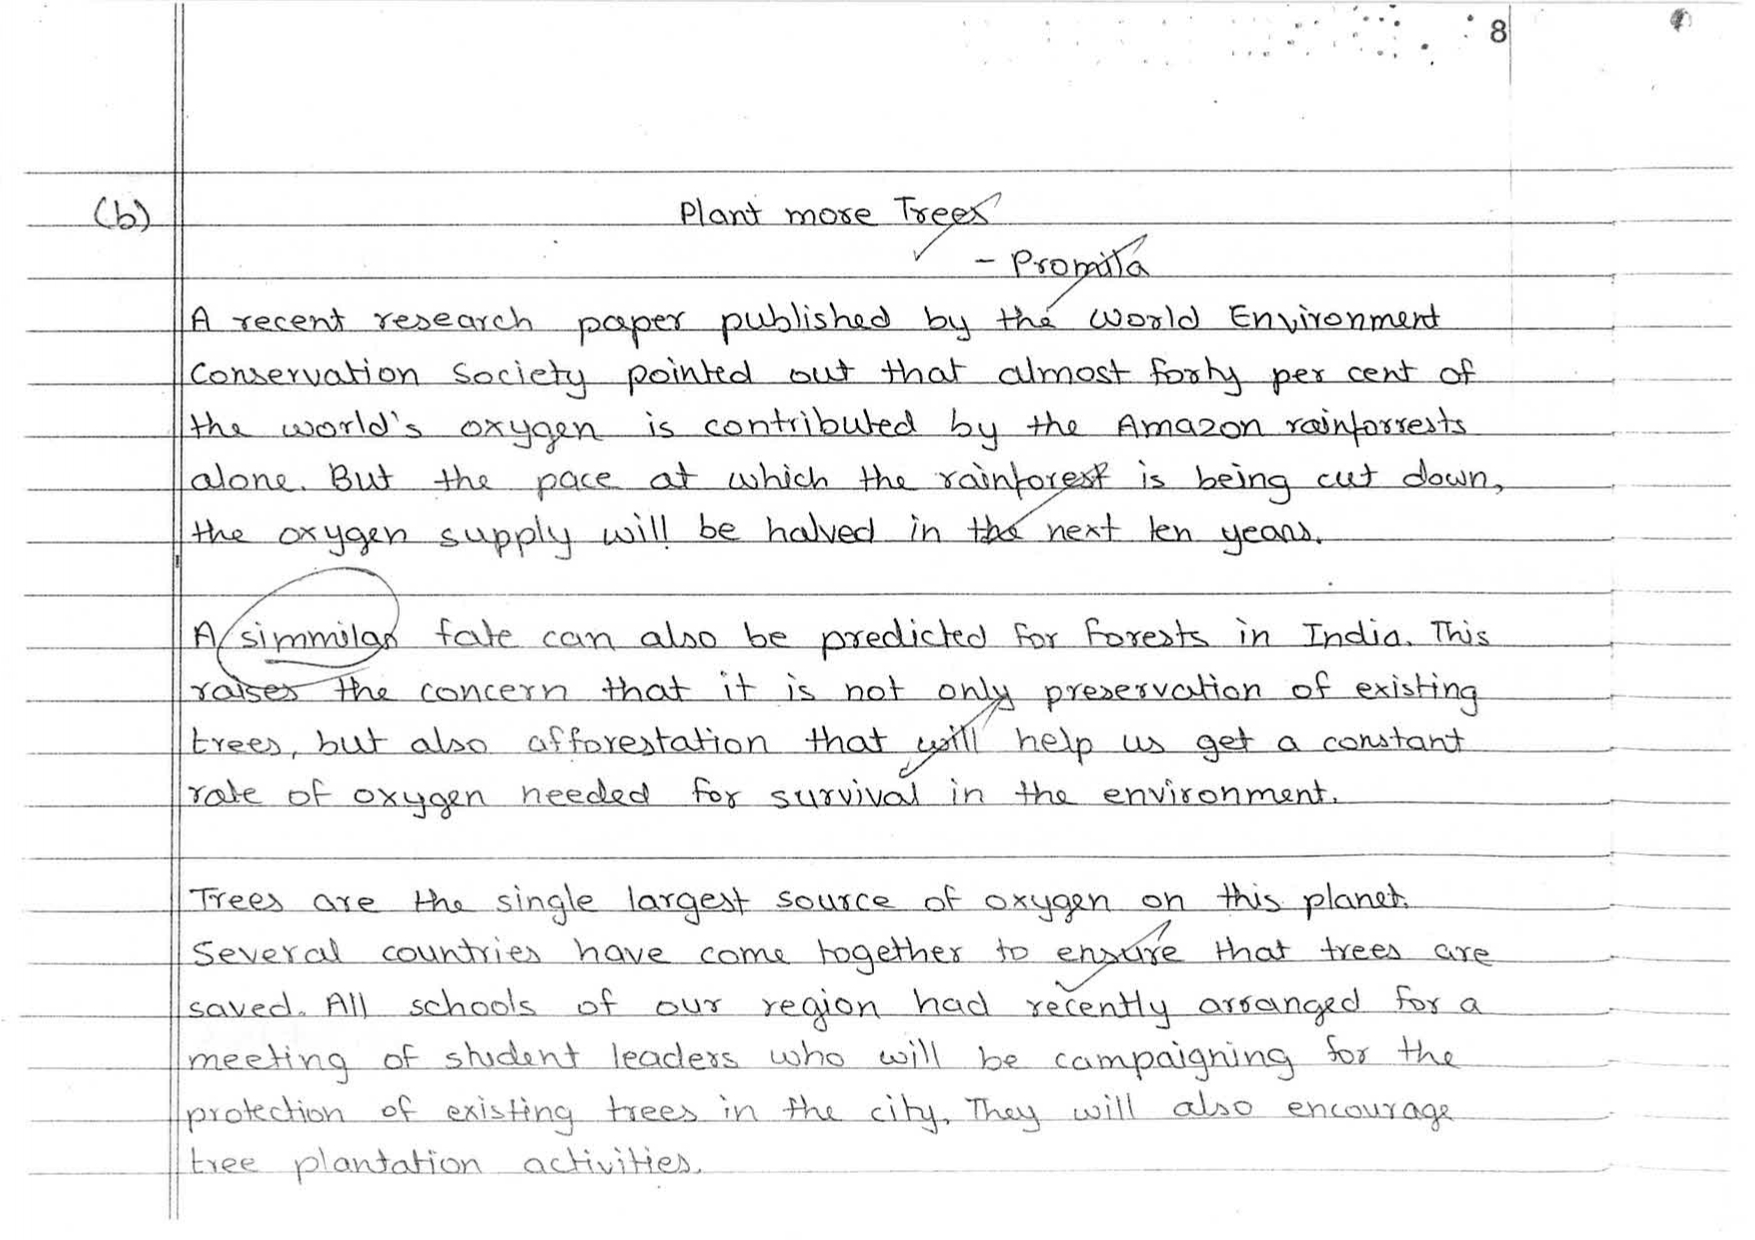 8
(b) Plant more Trees
- Promila
A recent research paper published by the World Environment
Conservation Society pointed out that almost forty per cent of
the world's oxygen is contributed by the Amazon rainforrests
alone. But the pace at which the rainforest is being cut down,
the oxygen supply will be halved in the next ten years.
A simmilar fate can also be predicted for forests in India. This
raises the concern that it is not only preservation of existing
trees, but also afforestation that will help us get a constant
rate of oxygen needed for survival in the environment.
Trees are the single largest source of oxygen on this planet.
Several countries have come together to ensure that trees are
saved. All schools of our region had recently arranged for a
meeting of student leaders who will be campaigning for the
protection of existing trees in the city. They will also encourage
tree plantation activities.